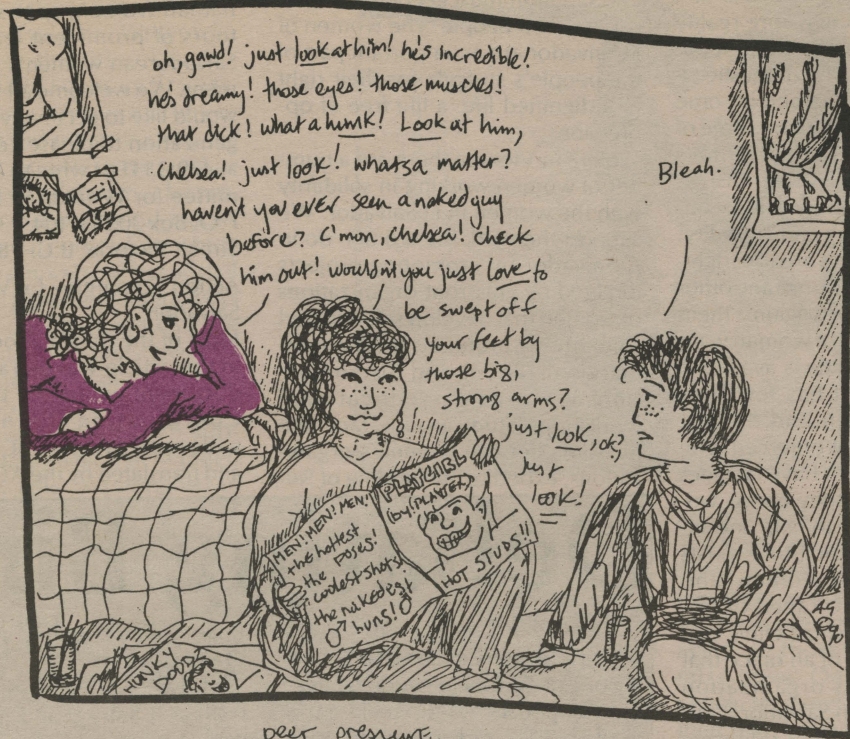 oh, gawd! just look at him! he's incredible!
he's dreamy! those eyes! those muscles!
that dick! what a hunk! Look at him,
Chelsea! just look! whatsa matter?
haven't you ever seen a naked guy
before? C'mon, Chelsea! check
him out! wouldn't you just love to
be swept off
your feet by
those big,
strong arms?
just look, ok?
just
look!
Bleah.
MEN! MEN! MEN!
the hottest
poses!
the
coolest shots!
the nakedest
buns!
PLAYGIRL
(by PLAYBOY)
HOT STUDS!!
HUNKY
DOOD
AG
90
peer pressure